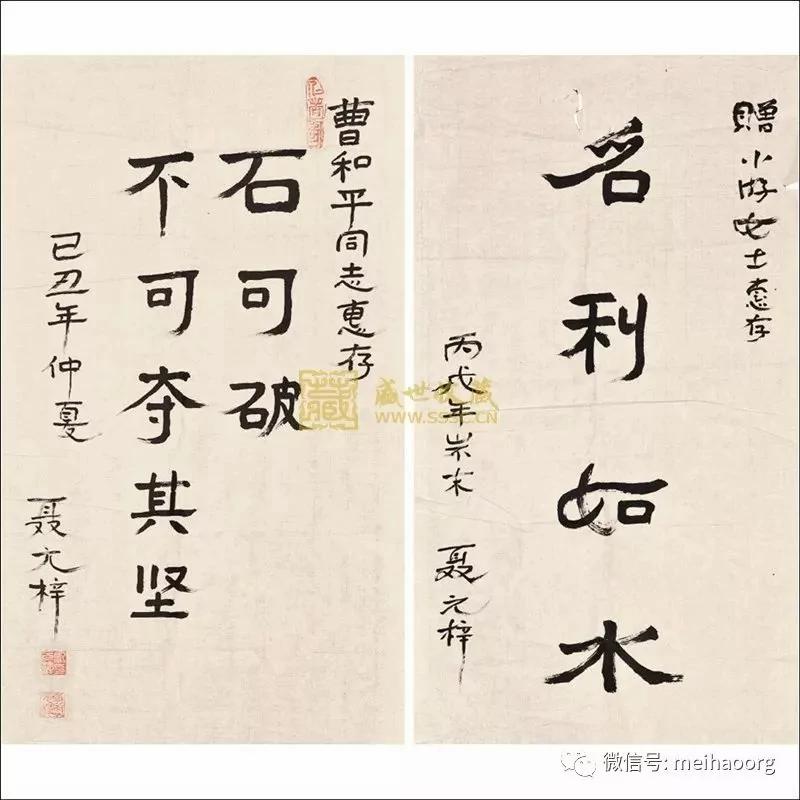 赠小游女士惠存
名利如水
丙戌年岁末
聂元梓
曹和平同志惠存
石可破
不可夺其坚
己丑年仲夏
聂元梓
藏
盛世收藏
WWW.SSSC.CN
微信号: meihaoorg